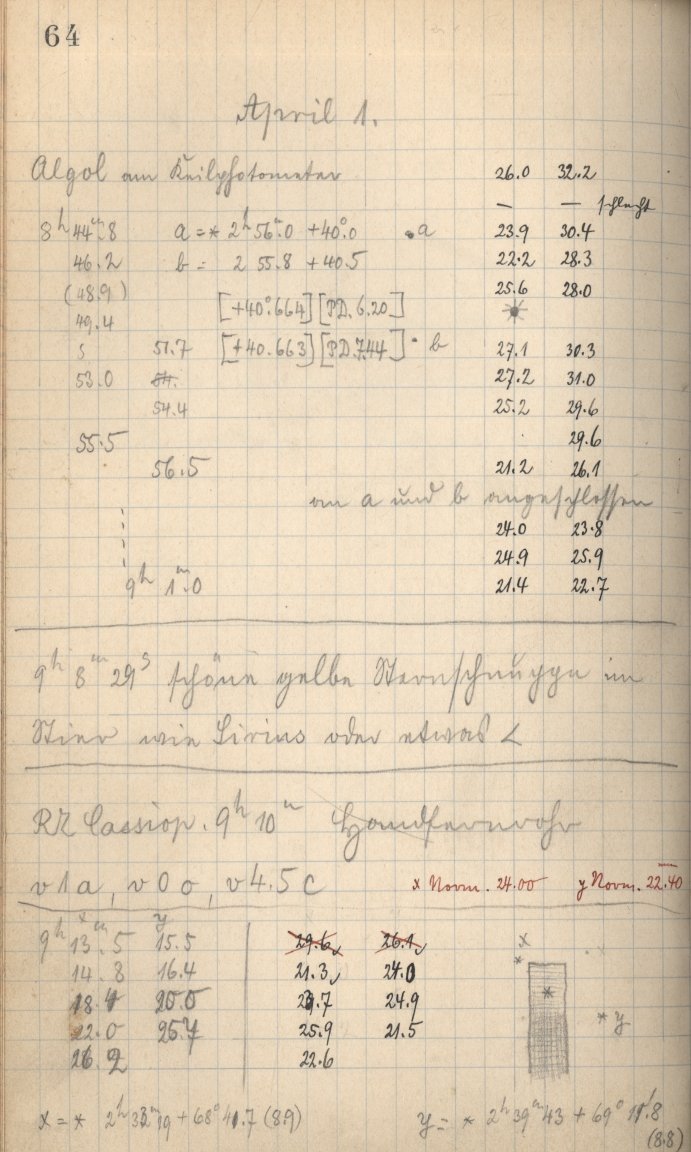 64
April 1.
Algol am Keilphotometer 26.0 32.2
— — schlecht
8h 44m.8 a = * 2h 56m.0 +40°.0 a 23.9 30.4
46.2 b = 2 55.8 +40.5 22.2 28.3
(48.9) 25.6 28.0
[+40°.664] [PD. 6.20]
49.4
s 51.7 [+40.663] [PD. 7.44] b 27.1 30.3
53.0 27.2 31.0
54.4 25.2 29.6
55.5 29.6
56.5 21.2 26.1
an a und b angeschlossen
24.0 23.8
24.9 25.9
9h 1m.0 21.4 22.7
9h 8m 29s schöne gelbe Sternschnuppe im
Stier wie Sirius oder etwas <
RZ Cassiop. 9h 10m Handfernrohr
v 1 a, v 0 o, v 4.5 c x Norm. 24.00 y Norm. 22.40
x y
9h 13m.5 15.5 29.6 26.1 x
14.8 16.4 21.3 24.0
18.4 20.0 23.7 24.9
22.0 25.7 25.9 21.5 * y
26.2 22.6
x = * 2h 33m 19 + 68° 41.7 (8.9) y = * 2h 39m 43 + 69° 11'.8
(8.8)